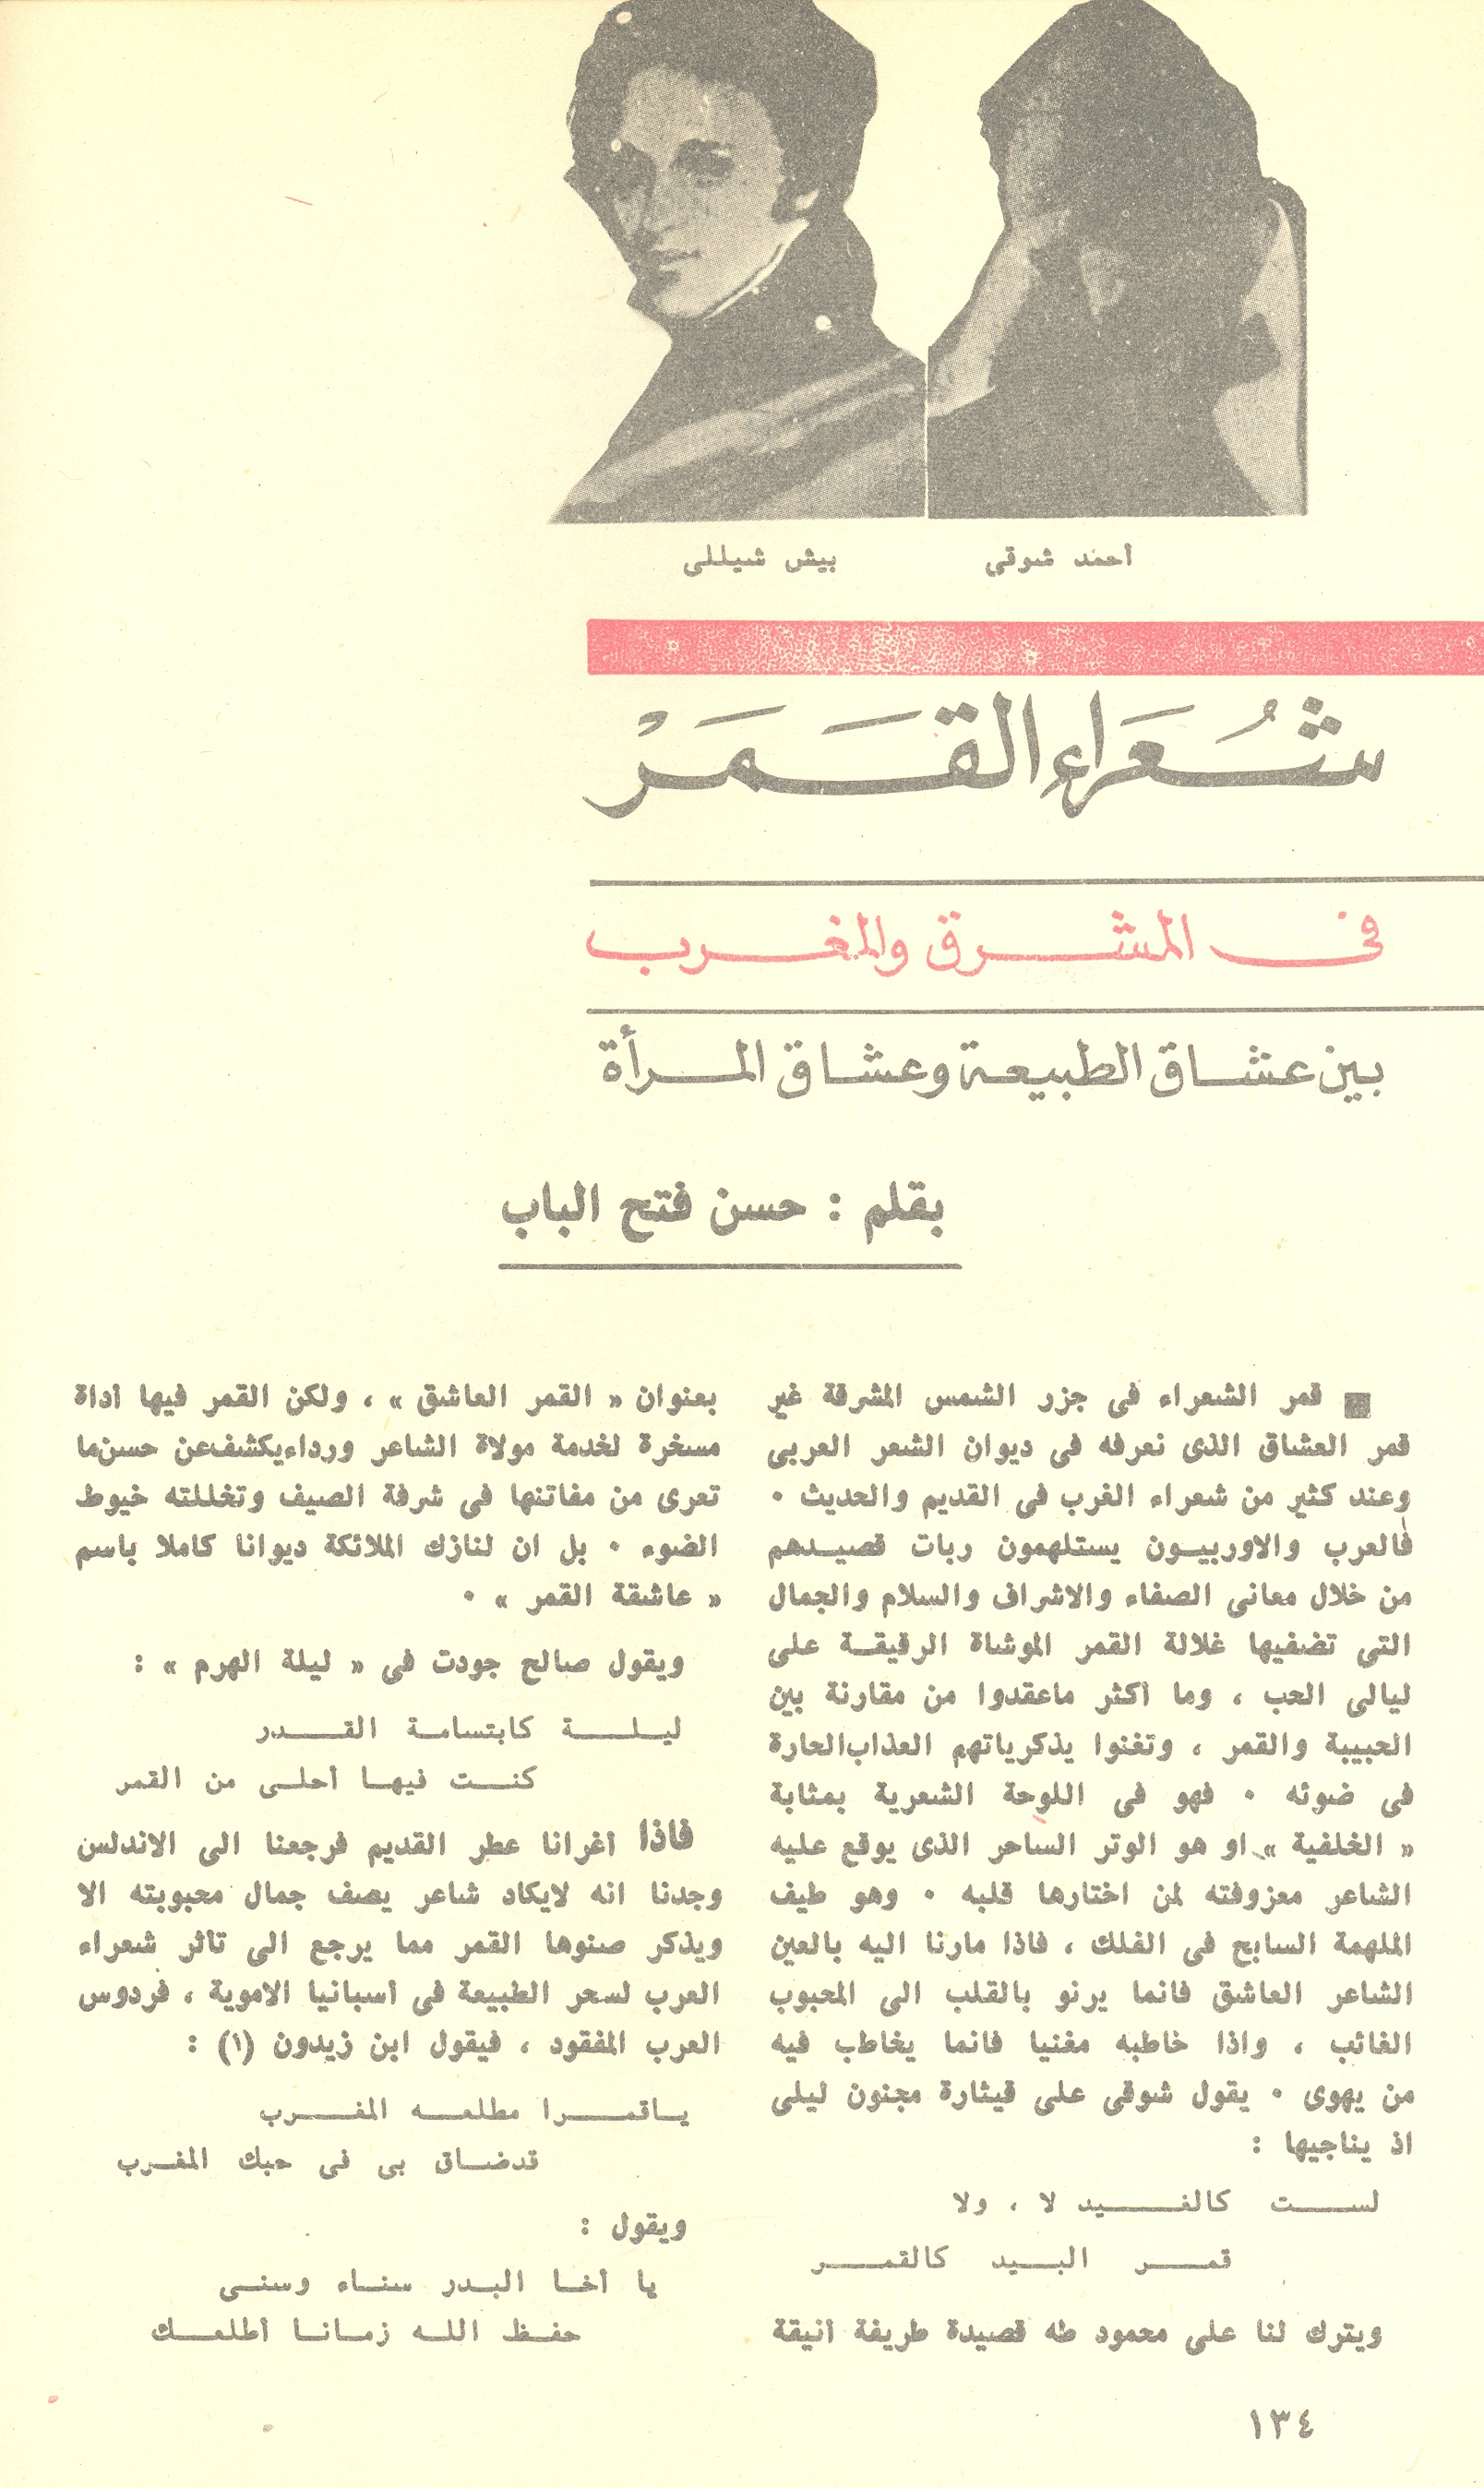 أحمد شوقي
بيش شيللى
شُعَراءِ القَمَرْ
فى المشرق والمغرب
بين عشاق الطبيعة وعشاق المرأة
بقلم : حسن فتح الباب
■ قمر الشعراء فى جزر الشمس المشرقة غير
قمر العشاق الذى نعرفه فى ديوان الشعر العربى
وعند كثير من شعراء الغرب فى القديم والحديث ٠
فالعرب والاوربيـون يستلهمون ربات قصيـدهم
من خلال معانى الصفاء والاشراف والسلام والجمال
التى تضفيها غلالة القمر الموشاة الرقيقـة على
ليالى الحب ، وما أكثر ماعقدوا من مقارنة بين
الحبيبة والقمر ، وتغنوا يذكرياتهم العذاب الحارة
فى ضوئه ٠ فهو فى اللوحة الشعرية بمثابة
« الخلفية » او هو الوتر الساحر الذى يوقع عليه
الشاعر معزوفته لمن اختارها قلبه ٠ وهو طيف
الملهمة السابح فى الفلك ، فاذا مارنا اليه بالعين
الشاعر العاشق فانما يرنو بالقلب الى المحبوب
الغائب ، واذا خاطبه مغنيا فانما يخاطب فيه
من يهوى ٠ يقول شوقى على قيثارة مجنون ليلى
اذ يناجيها :
لســـت كالغـــــيد لا ، ولا
قمـــر البـــيد كالقمـــر
ويترك لنا على محمود طه قصيدة طريفة أنيقة
بعنوان « القمر العاشق » ، ولكن القمر فيها أداة
مسخرة لخدمة مولاة الشاعر ورداء يكشف عن حسن ما
تعرى من مفاتنها فى شرفة الصيف وتخللته خيوط
الضوء ٠ بل ان لنازك الملائكة ديوانا كاملا باسم
« عاشقة القمر » ٠
ويقول صالح جودت فى « ليلة الهرم » :
ليـلــــة كابتسامـة القـــدر
كنـــت فيهـا أحلـى من القمر
فاذا أغرانا عطر القديم فرجعنا الى الاندلس
وجدنا انه لايكاد شاعر يصف جمال محبوبته الا
ويذكر صنوها القمر مما يرجع الى تاثر شعراء
العرب لسحر الطبيعة فى أسبانيا الاموية ، فردوس
العرب المفقود ، فيقول ابن زيدون (١) :
يـاقمــــرا مطلعـــه المغـــرب
قدضـاق بى فى حبك المغـرب
ويقول :
يا أخـا البـدر سنـاء وسنـى
حفـظ اللـه زمـانـا أطلعـك
١٣٤